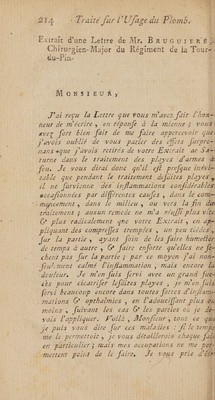 214 Traité sur l'Usage du Plomb.
Extrait d'une Lettre de Mr. BRUGUIERE,
Chirurgien-Major du Régiment de la Tour-
du-Pin.
MONSIEUR,
J'ai reçu la Lettre que vous m'avez fait l'hon-
neur de m'écrire, en réponse à la mienne; vous
avez fort bien fait de me faire appercevoir que
j'avois oublié de vous parler des effets surpre-
nans que j'avois retirés de votre Extrait de Sa-
turne dans le traitement des playes d'armes à
feu. Je vous dirai donc qu'il est presque inévi-
table que pendant le traitement desdites playes,
il ne survienne des inflammations considérables
occasionnées par différentes causes, dans le com-
mencement, dans le milieu, ou vers la fin du
traitement; aucun remede ne m'a réussi plus vîte
& plus radicalement que votre Extrait, en ap-
pliquant des compresses trempées, un peu tiédes,
sur la partie, ayant soin de les faire humecter
de temps à autre, & faire ensorte qu'elles ne se
chent pas sur la partie; par ce moyen j'ai non-
seulement calmé l'inflammation, mais encore la
douleur. Je m'en suis servi avec un grand suc-
cès pour cicatriser lesdites playes, je m'en suis
servi beaucoup encore dans toutes sortes d'inflam-
mations & opthalmies, en l'adoucissant plus ou
moins, suivant les cas & les parties où je de-
vois l'appliquer. Voilà, Monsieur, tout ce que
je puis vous dire sur ces maladies: si le temps
me le permettoit, je vous détaillerois chaque fait
en particulier; mais mes occupations ne me per-
mettent point de le faire. Je vous prie d'être